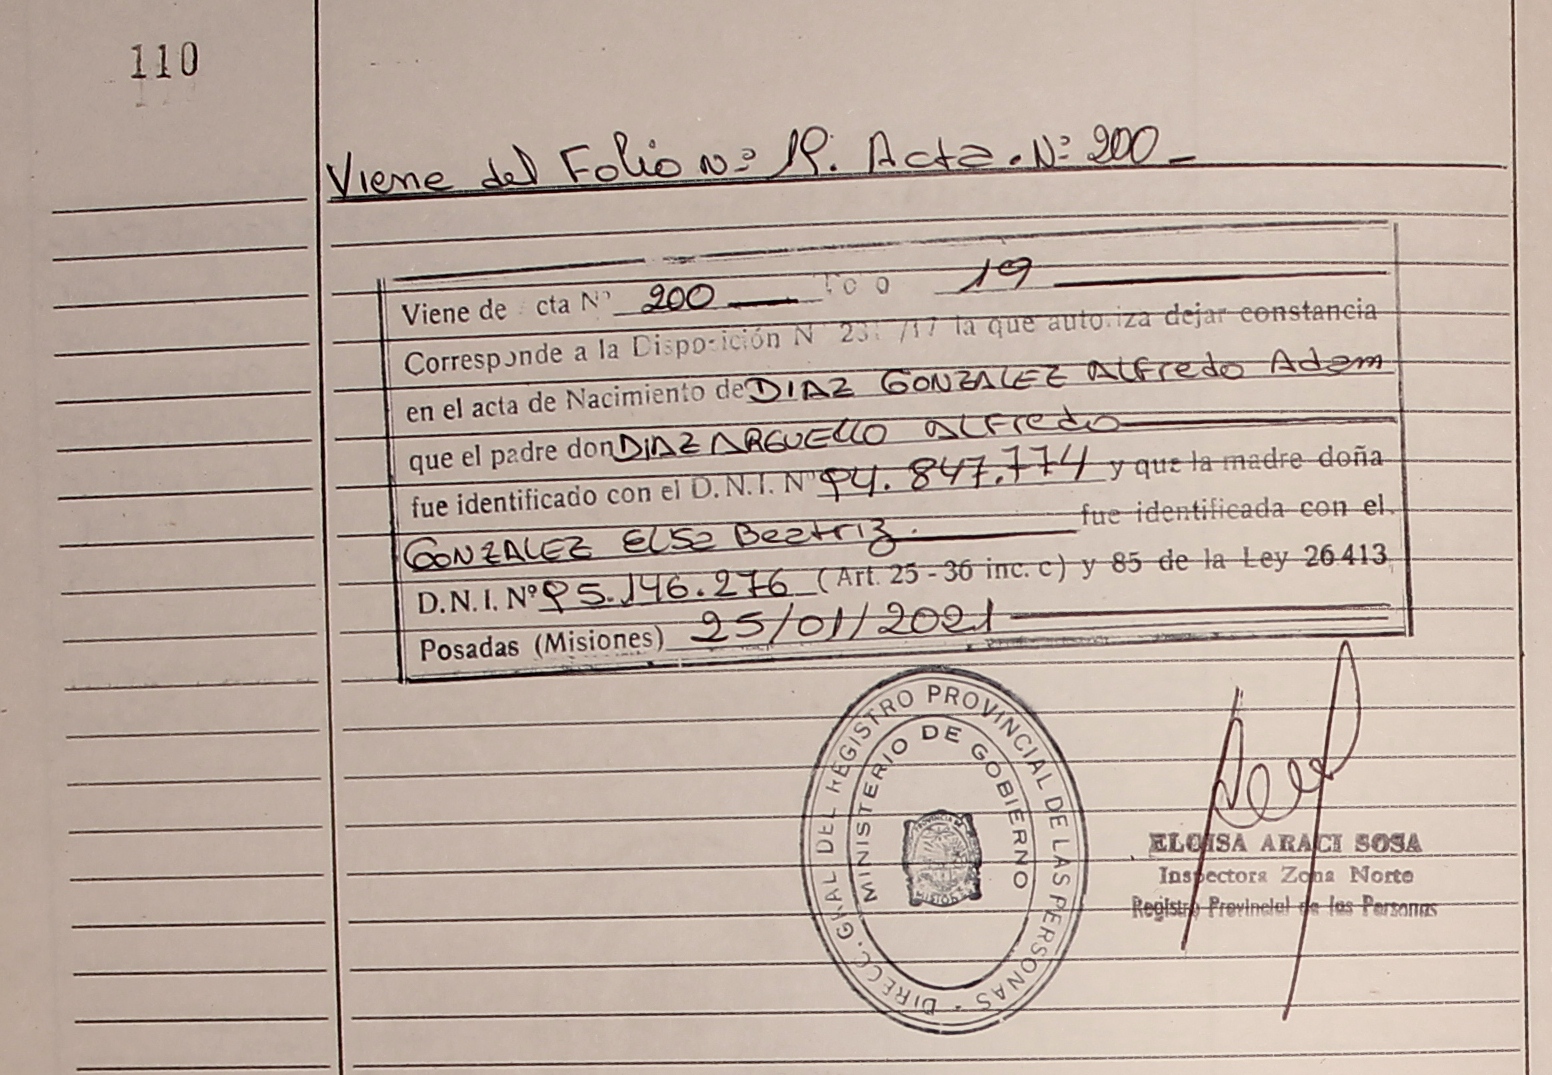 110
Viene del Folio Nº 19. Acta. Nº 200
Viene de cta Nº 200 19
Corresponde a la Disposición N /17 la que autoriza dejar constancia
en el acta de Nacimiento de DIAZ GONZALEZ ALFredo Adam
que el padre don DIAZ ARGUELLO ALFredo
fue identificado con el D.N.I. Nº 94.847.774 y que la madre doña
GONZALEZ ELSa Beatriz. fue identificada con el
D.N.I. Nº 95.146.276 (Art. 25 - 36 inc. c) y 85 de la Ley 26.413
Posadas (Misiones) 25/01/2021
DIRECC. GRAL DEL REGISTRO PROVINCIAL DE LAS PERSONAS
MINISTERIO DE GOBIERNO
ELOISA ARACI SOSA
Inspectora Zona Norte
Registro Provincial de las Personas